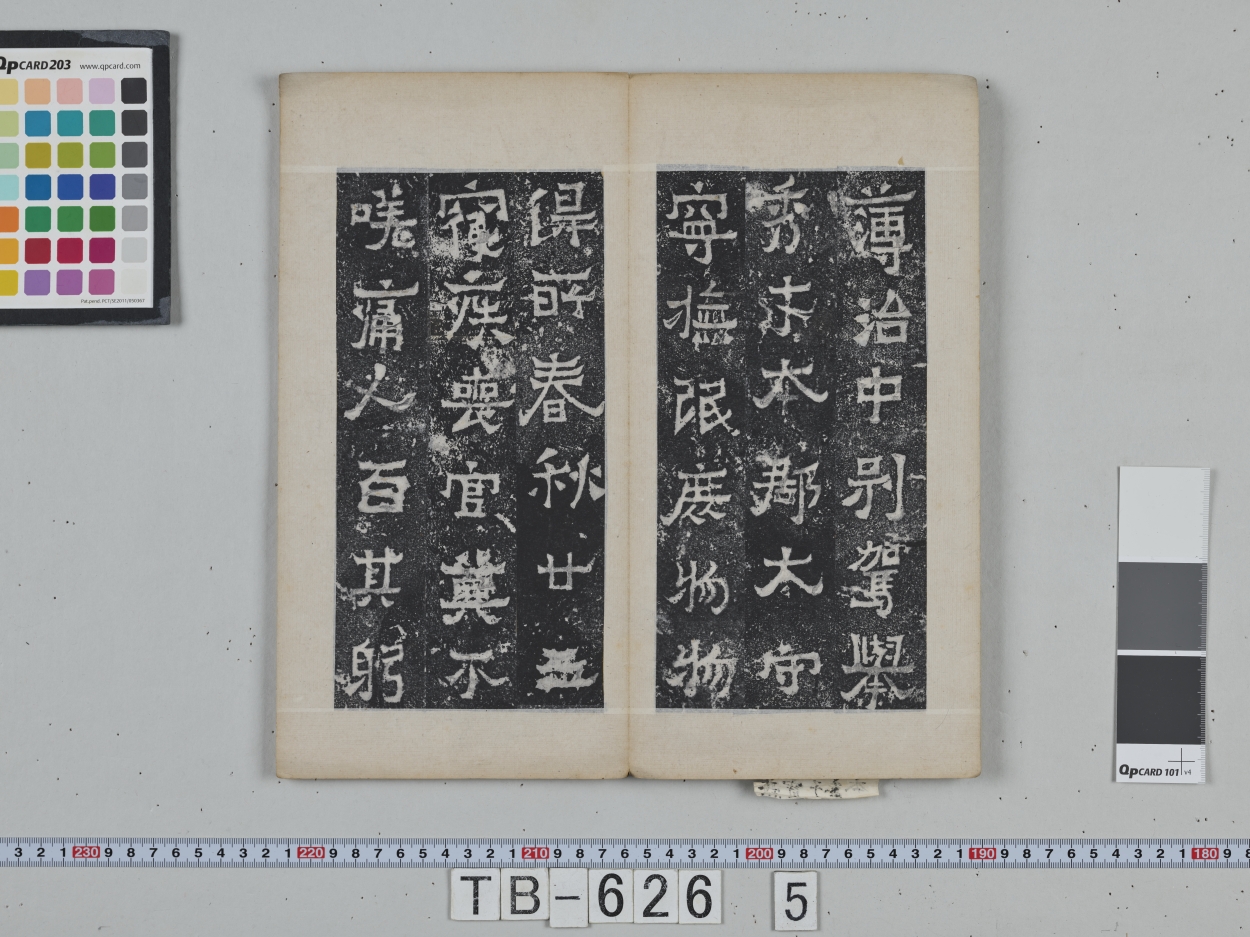 薄治中别駕舉
秀才本郡太守
寧撫氓庶物物
得所春秋廿五
寢疾喪官莫不
嗟痛人百其躬
QpCARD 203 www.qpcard.com
QpCARD 101 v4
3 2 1 230 9 8 7 6 5 4 3 2 1 220 9 8 7 6 5 4 3 2 1 210 9 8 7 6 5 4 3 2 1 200 9 8 7 6 5 4 3 2 1 190 9 8 7 6 5 4 3 2 1 180 9 8
TB-626 5